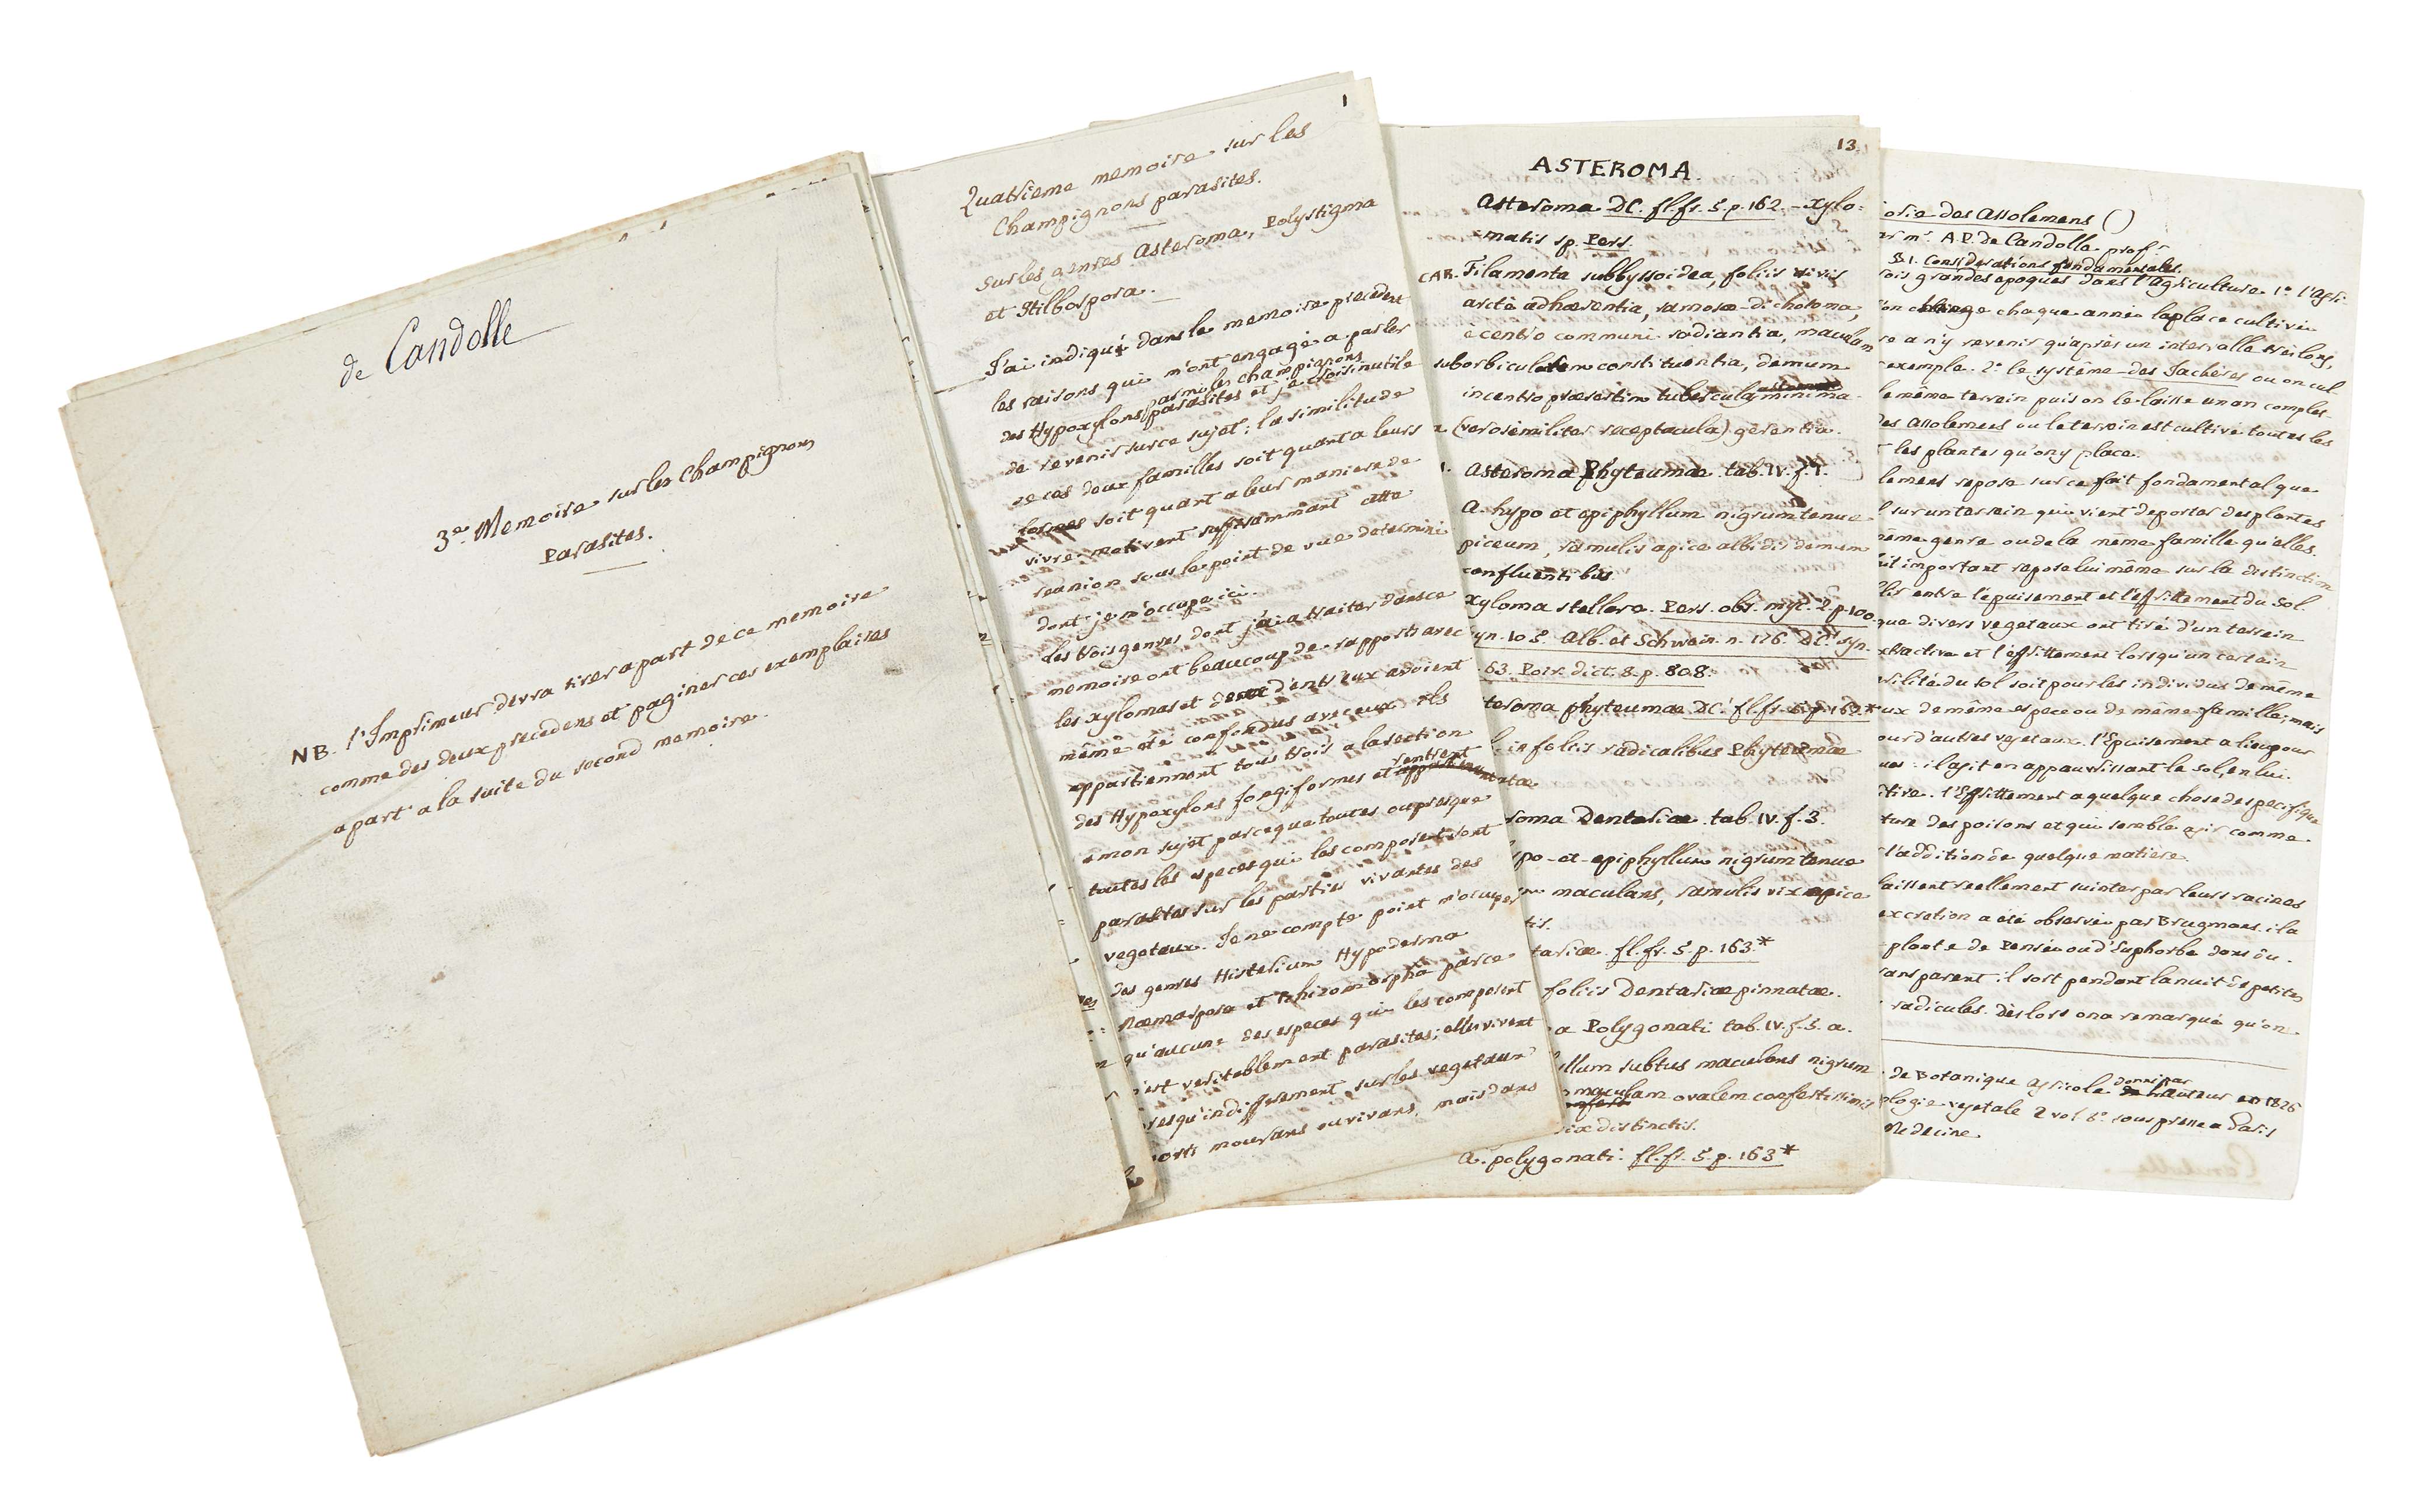 de Candolle
3e. Memoire sur les Champignons
Parasites.
NB. l'Imprimeur devra tirer a part de ce memoire
comme des deux precedens et paginer ces exemplaires
apart a la suite du second memoire.
1
Quatrieme memoire sur les
Champignons parasites.
sur les genres Asteroma, Polystigma
et Stilbospora.
J'ai indiqué dans le memoire precedent
les raisons qui m'ont engagé a parler
parmi les champignons
des Hypoxylons parasites et je crois inutile
de revenir sur ce sujet; la similitude
de ces deux familles soit quant a leurs
formes soit quant a leur maniere de
vivre motivent suffisamment cette
reunion sous le point de vue determiné
dont je m'occupe ici.
Les trois genres dont j'ai a traiter dans ce
memoire ont beaucoup de rapports avec
les xylomas et d'entr'eux avoient
même eté confondus avec eux. ils
appartiennent tous trois a la section
des Hypoxylons fongiformes et rentrent
a mon sujet parceque toutes ou presque
toutes les especes qui les composent sont
parasites sur les parties vivantes des
vegetaux. Je ne compte point m'occuper
des genres Histerium Hypoderma
Naemaspora et Rhizomorpha parce
qu'aucune des especes qui les composent
n'est veritablement parasites; elles vivent
presqu'indifferement sur les vegetaux
morts mourans ou vivans, mais dans
13
ASTEROMA.
Asteroma DC. fl. fr. 5. p. 162. - xylo=
=matis sp. Pers.
CAR. Filamenta subbyssoidea, foliis vivis
arctè adhaerentia, ramoso-dichotoma,
è centro communi radiantia, maculam
suborbicularem constituentia, demum
in centro praesertim tubercula minima
(verosimiliter receptacula) gerentia.
1. Asteroma Phyteumae tab. IV. f. 1.
A. hypo et epiphyllum nigrum tenue
piceum, ramulis apice albidis demum
confluentibus
xyloma stellare. Pers. obs. myc. 2. p. 100
syn. 105. Alb. et Schwein. n. 176. DC. syn.
63. Poir. dict. 8. p. 808.
Asteroma phyteumae DC. fl. fr. 5. p. 162*
in foliis radicalibus Phyteumae
Dentariae tab. IV. f. 3.
hypo-et-epiphyllum nigrum tenue
maculans, ramulis vix apice
fl. fr. 5. p. 163*
foliis Dentariae pinnatae.
Polygonati tab. IV. f. 5. a.
subtus maculans nigrum
maculam ovalem confertissimis
distinctis.
A. polygonati. fl. fr. 5. p. 163*
des Assolemens ( )
par mr. A. P. de Candolle profr
§1. Considerations fondamentales.
trois grandes epoques dans l'agriculture. 1° l'agri-
change chaque année la place cultivée
a n'y revenir qu'après un intervalle très long,
exemple. 2° le systême des Jachères ou on cul
le même terrein puis on le laisse un an complet
des Assolemens ou le terrein est cultivé toutes les
les plantes qu'on y place.
repose sur ce fait fondamental que
sur un terrein qui vient de porter des plantes
même genre ou de la même famille qu'elles.
fait important repose lui même sur la distinction
entre l'épuisement et l'effritement du sol.
que divers vegetaux ont tiré d'un terrein
et l'effritement lorsqu'un certain
du sol soit pour les individus de même
de même espece ou de même famille, mais
pour d'autres vegetaux. l'Epuisement a lieu pour
il agit en appauvrissant le sol, en lui
l'Effritement a quelque chose de specifique
des poisons et qui semble agir comme
l'addition de quelque matiere.
laissent reellement suinter par leurs racines
excretion a été observée par Brugmans: il a
plante de Pensée ou d'Euphorbe dans du
transparent il sort pendant la nuit de petites
radicules. Dès lors on a remarqué qu'on
de Botanique agricole donné par l'auteur en 1826
vegetale 2 vol 8° sous presse a Paris
Medecine